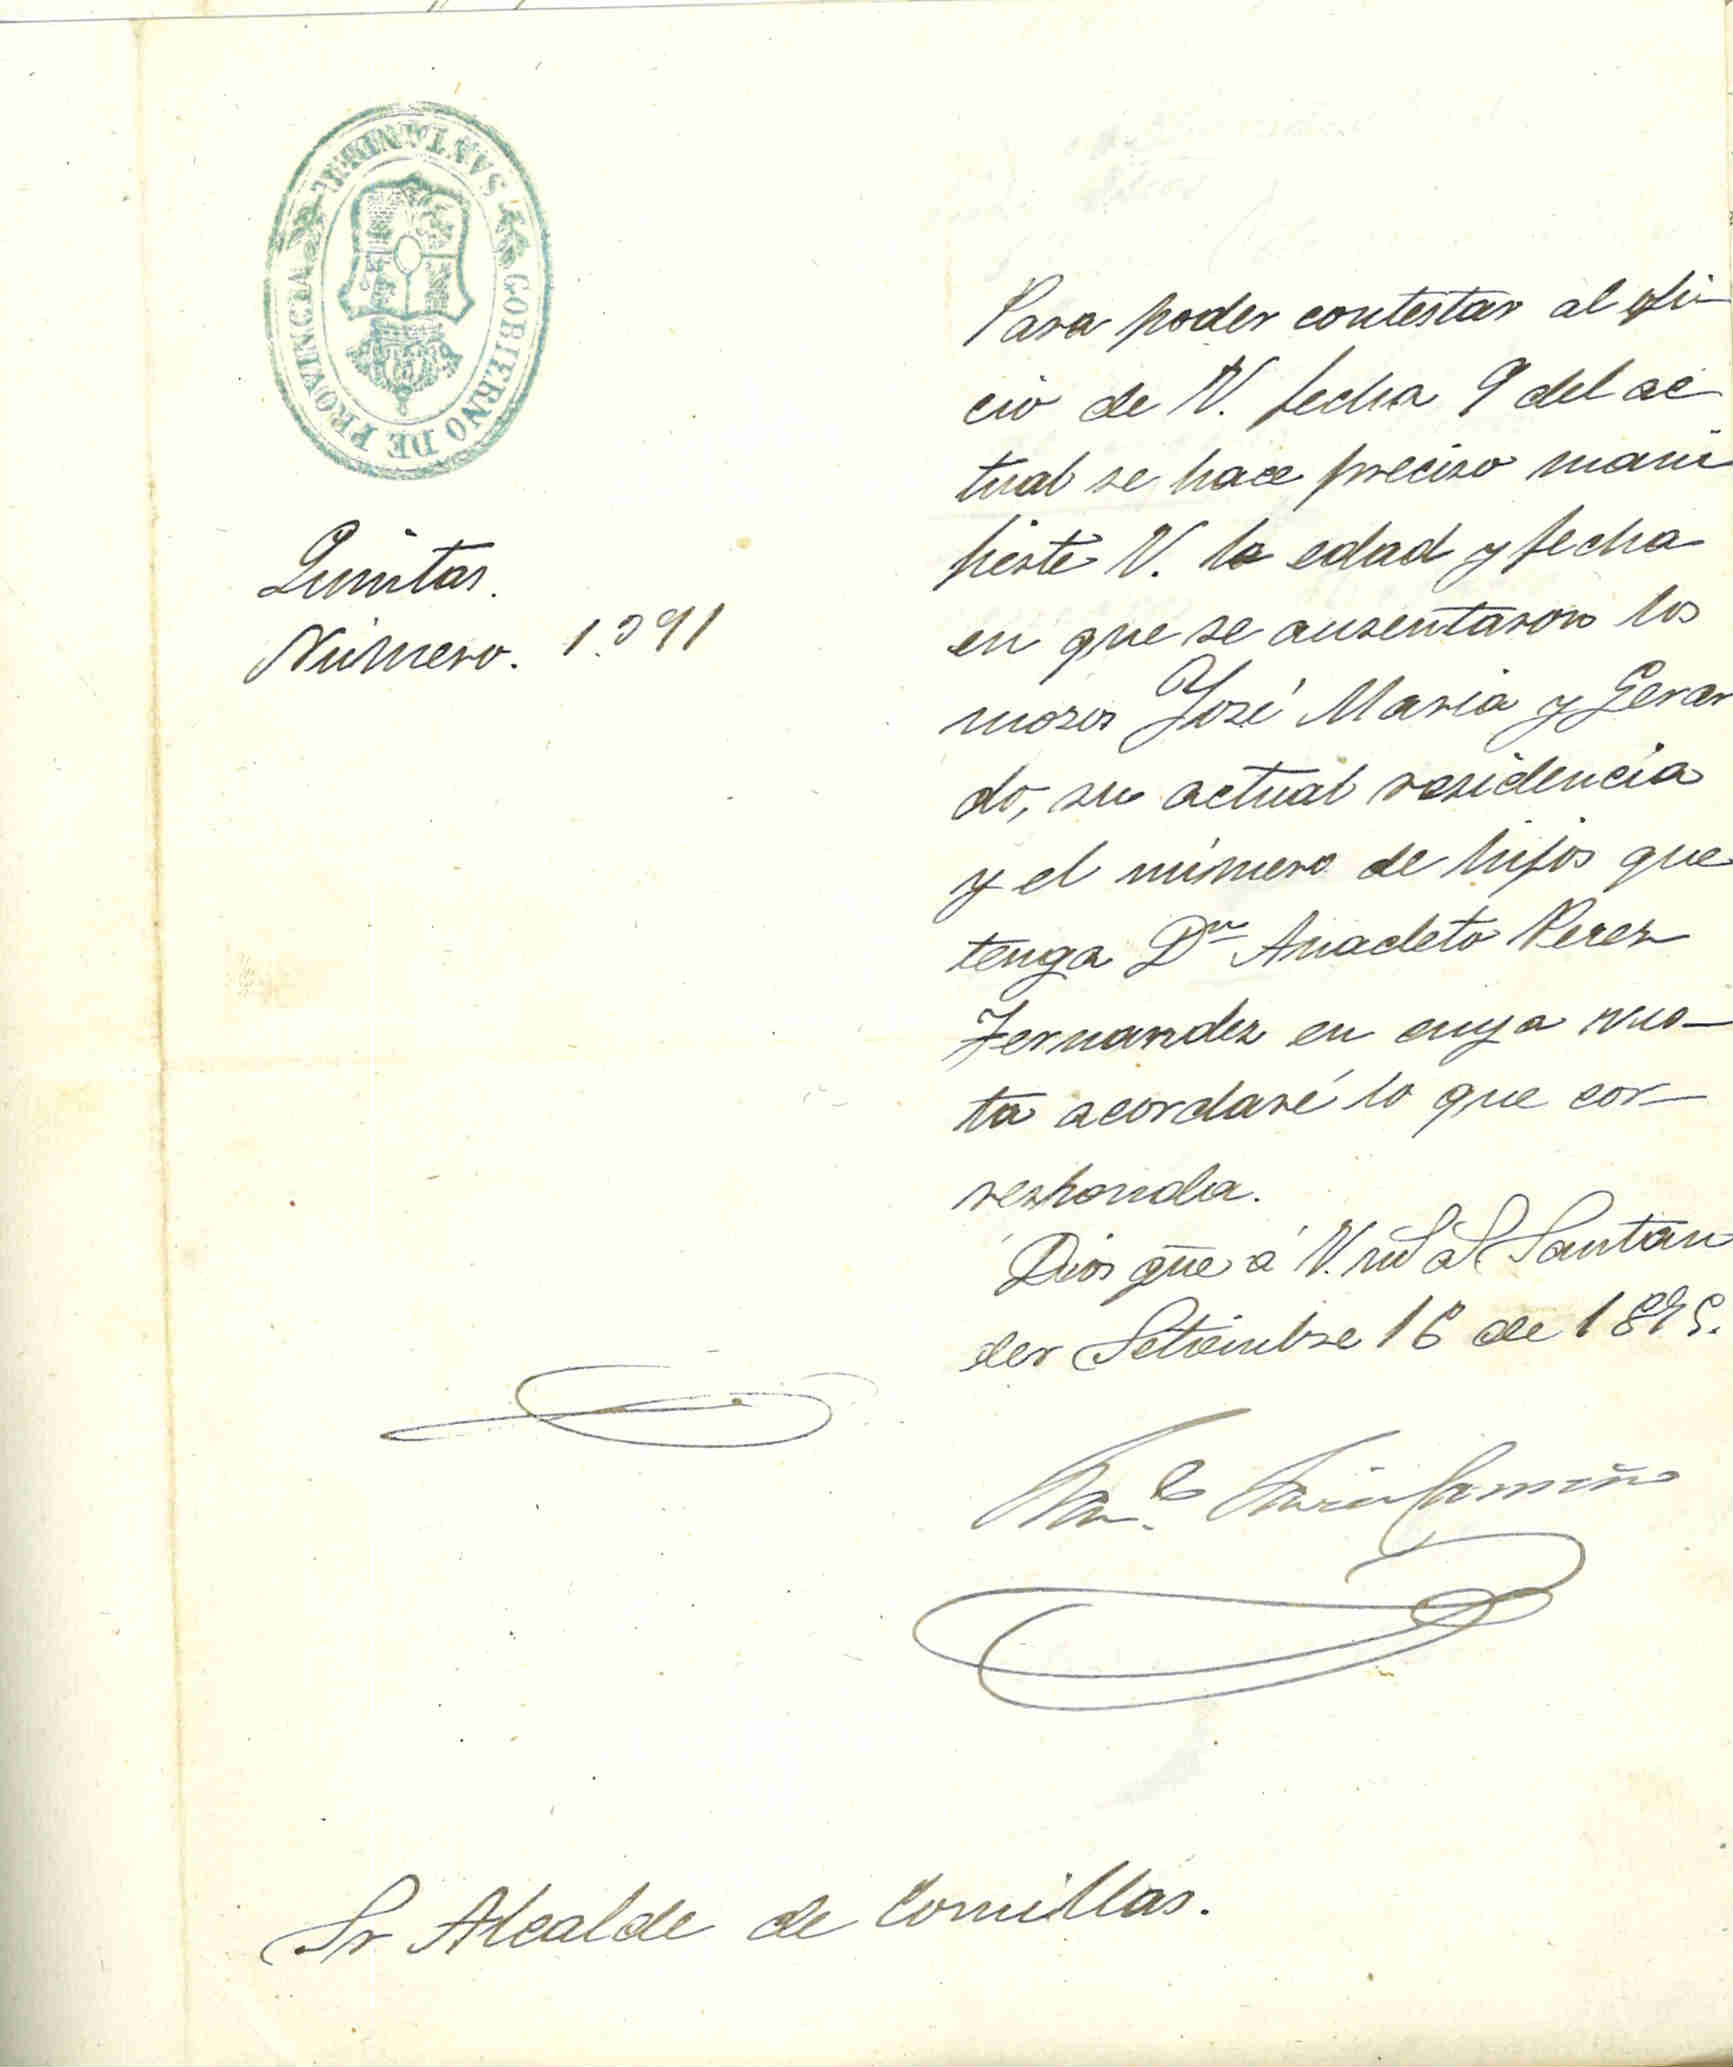 GOBIERNO DE PROVINCIA
SANTANDER
Quintas.
Número. 1.391
Para poder contestar al ofi-
cio de V. fecha 9 del ac
tual se hace preciso mani
fieste V. la edad y fecha
en que se ausentaron los
mozos José Maria y Gerar
do, su actual residencia
y el número de hijos que
tenga Dn Anacleto Perez
Fernandez en cuya vis-
ta acordaré lo que cor-
responda.
Dios gue á V. ms as Santan
der Setiembre 16 de 1875.
Sr Alcalde de Comillas.